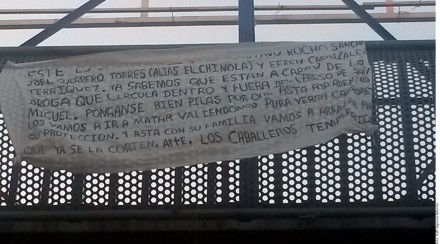 ESTE ES RUCHO SANCHE
JOEL GUERRERO TORRES (ALIAS EL CHINOLA) Y EFREN
TERRIQUEZ. YA SABEMOS QUE ESTAN A CARGO DE LA
DROGA QUE CIRCULA DENTRO Y FUERA DEL CERESO DE SAN
MIGUEL. PONGANSE BIEN PILAS POR QUE ASTA
LOS VAMOS A IR A MATAR VALIENDONOS PURA VERGA
SU PROTECCION. Y ASTA CON SU FAMILIA VAMOS A
QUE YA SE LA CORTEN. ATTE. LOS CABALLEROS